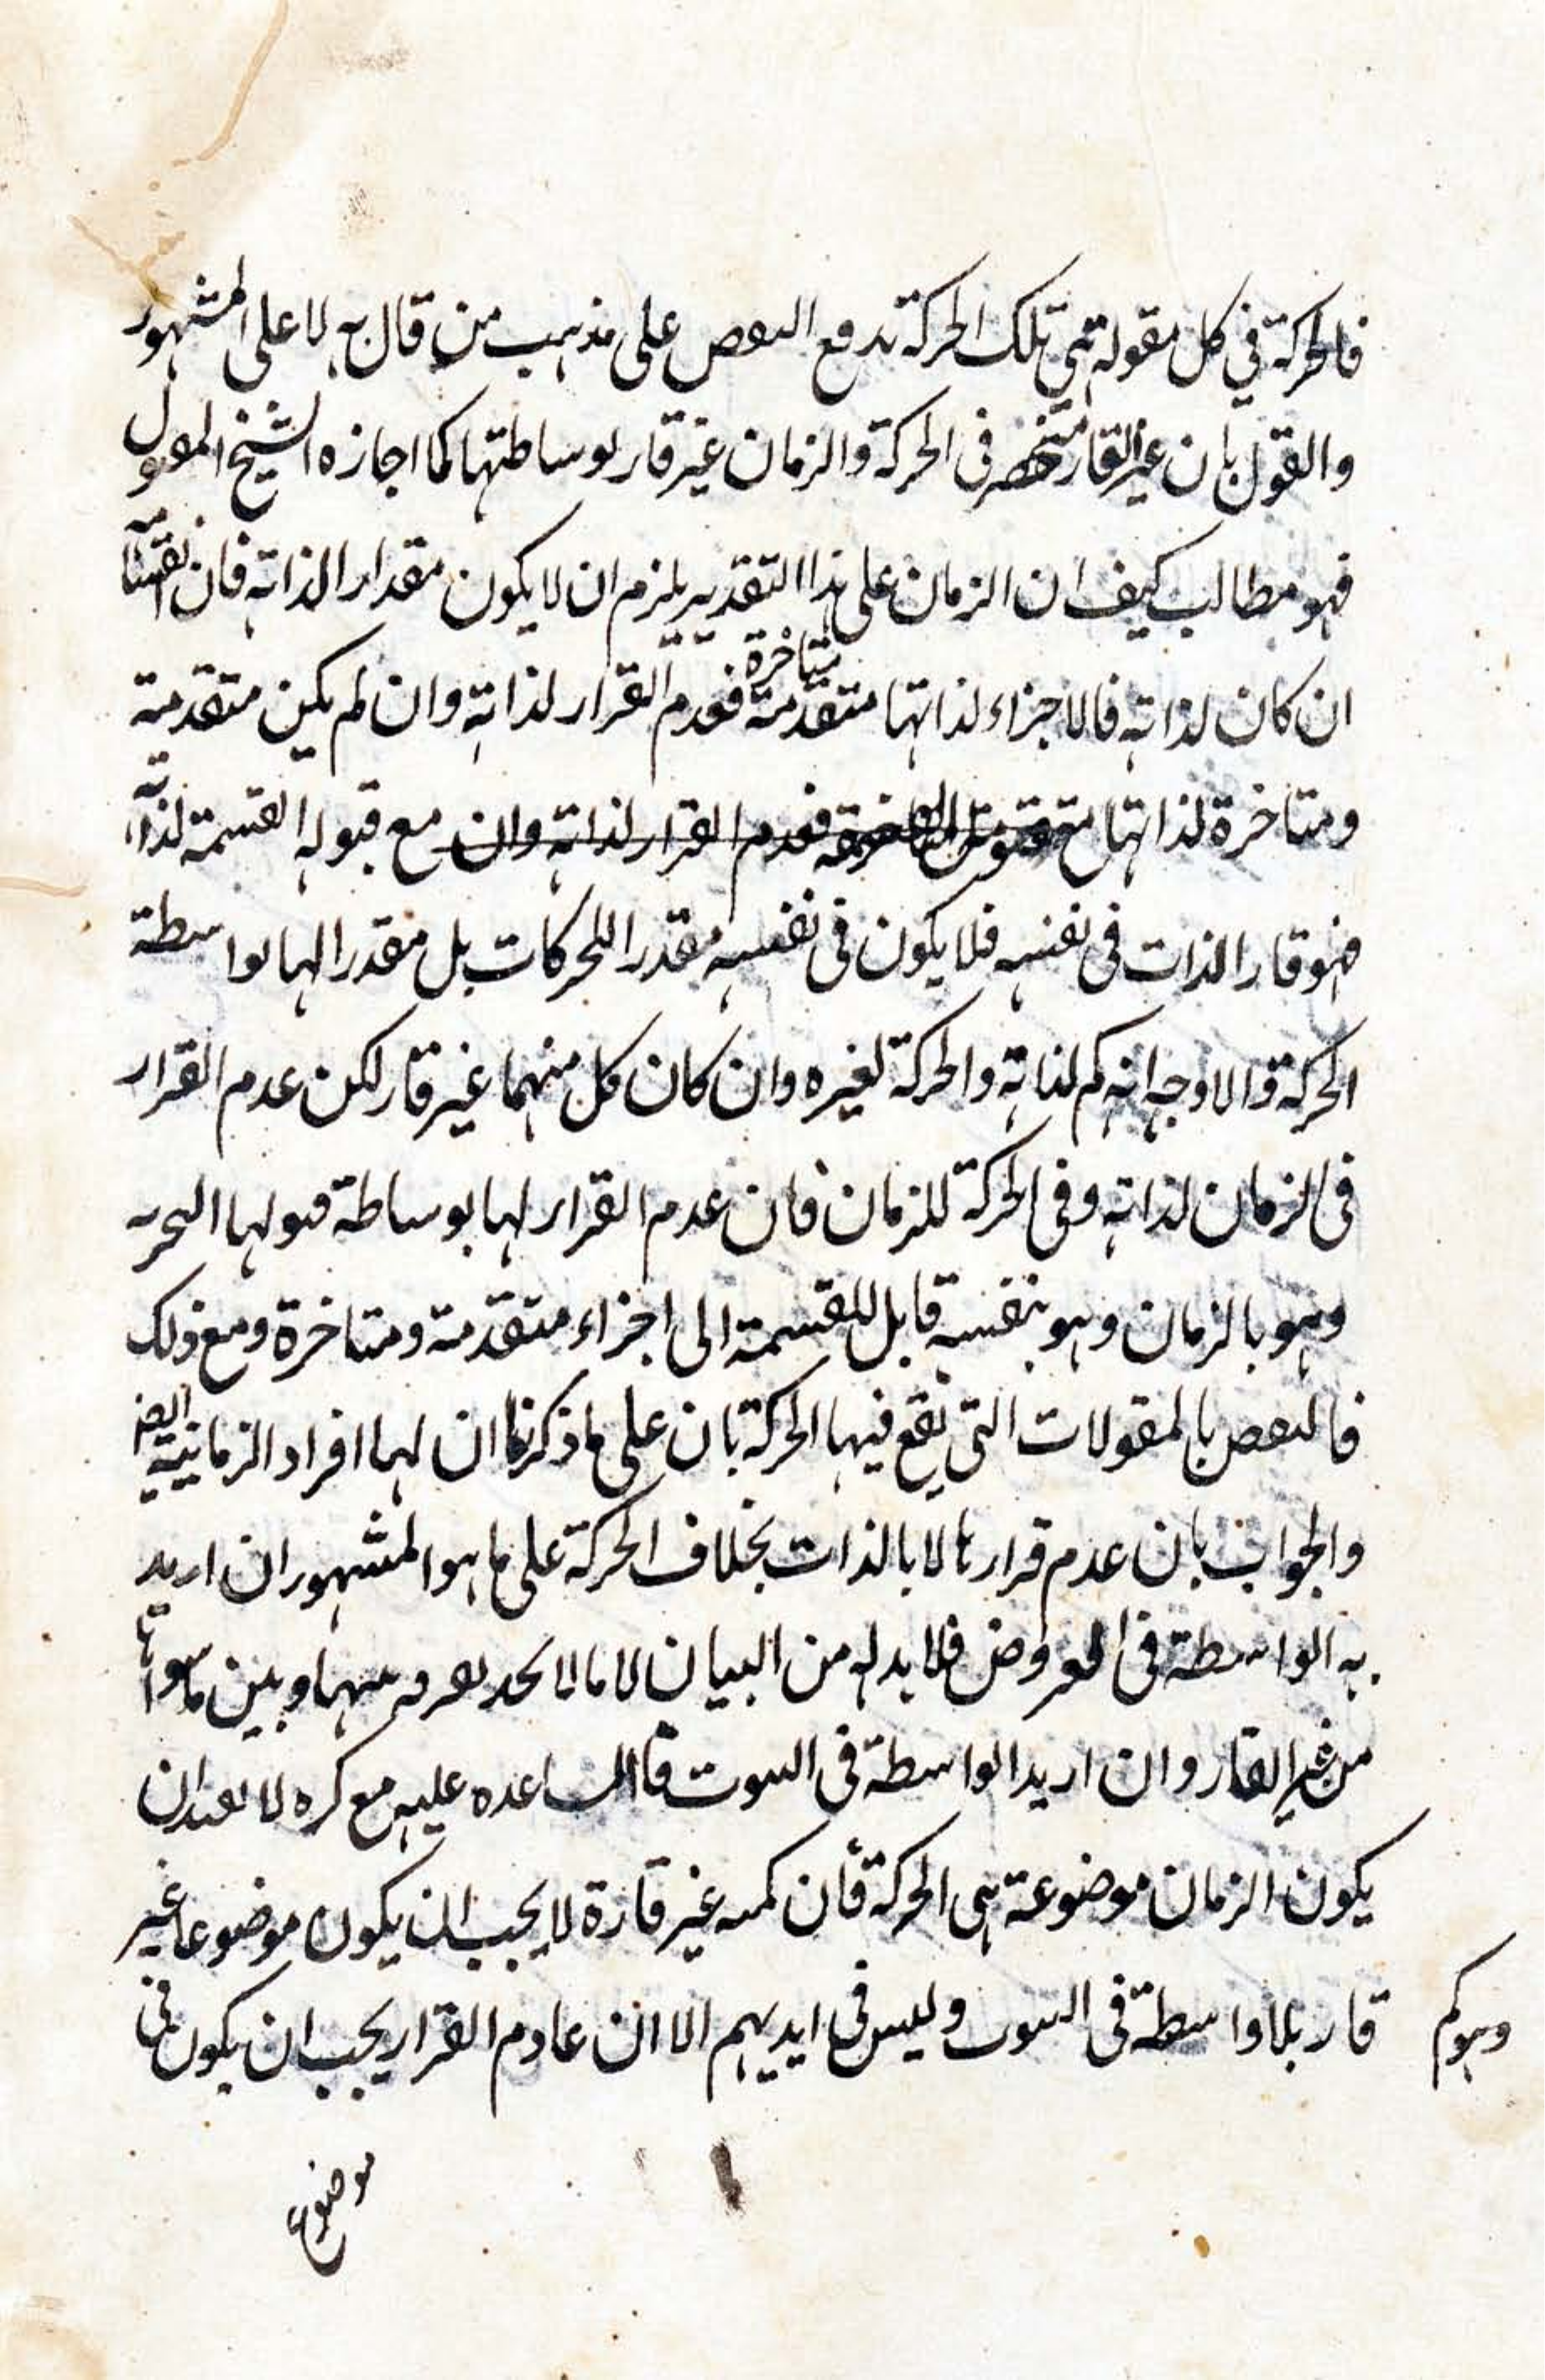 فالحركة في كل مقولة هي تلك الحركة يدفع النقض على مذهب من قال به لا على المشهور
والقول بان غير القار منحصر في الحركة والزمان غير قار بوساطتها كما اجازه الشيخ المقتول
فهو مطالب كيف ان الزمان على هذا التقدير يلزم ان لا يكون مقدارا لذاته فان
ان كان لذاته فالاجزاء لذاتها متقدمة متاخرة فعدم القرار لذاته وان لم يكن متقدمة
ومتاخرة لذاتها فعدم القرار لذاته وان مع قبوله القسمة لذاته
فهو قار الذات في نفسه فلا يكون في نفسه مقدرا للحركات بل مقدرا لها بواسطة
الحركة والاوجه انه كم لذاته والحركة لغيره وان كان كل منهما غير قار لكن عدم القرار
في الزمان لذاته وفي الحركة للزمان فان عدم القرار لها بوساطة قبولها التجزيه
وهو بالزمان وهو بنفسه قابل للقسمة الى اجزاء متقدمة ومتاخرة ومع ذلك
فالنقض بالمقولات التي تقع فيها الحركة بان على ما ذكرنا ان لهما افراد الزمانية
والجواب بان عدم قرارها لا بالذات بخلاف الحركة على ما هو المشهور ان اريد
به الواسطة في العروض فلا بد له من البيان لاما لا نجد تفرقه بينهما وبين ما سواها
من غير القار وان اريد الواسطة في الثبوت فالمساعده عليه مع كره لا يفيد ان
يكون الزمان موضوعة هي الحركة فان كمية غير قارة لا يجب ان يكون موضوعا غير
قار بلا واسطة في الثبوت وليس في ايديهم الا ان عادم القرار يجب ان يكون في
وهو كم
موضوع